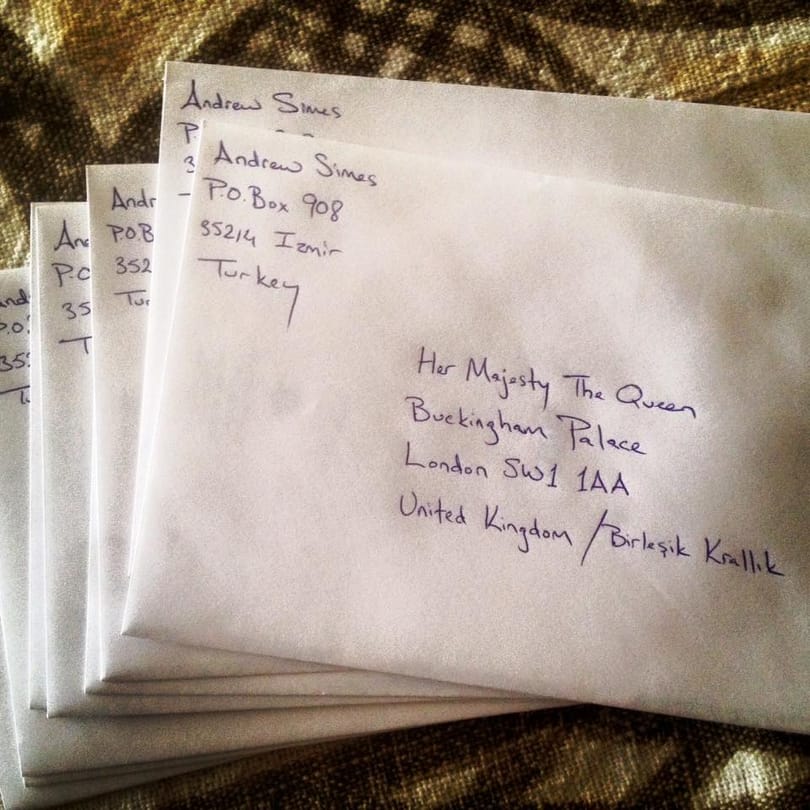 Andrew Simes
P.
3
Andrew Simes
P.O. Box 908
35214 Izmir
Turkey
Her Majesty The Queen
Buckingham Palace
London SW1 1AA
United Kingdom / Birleşik Krallık
Andr
P.O.B
352
Tur
An
P.O
35
T
and
P.O.
353
T